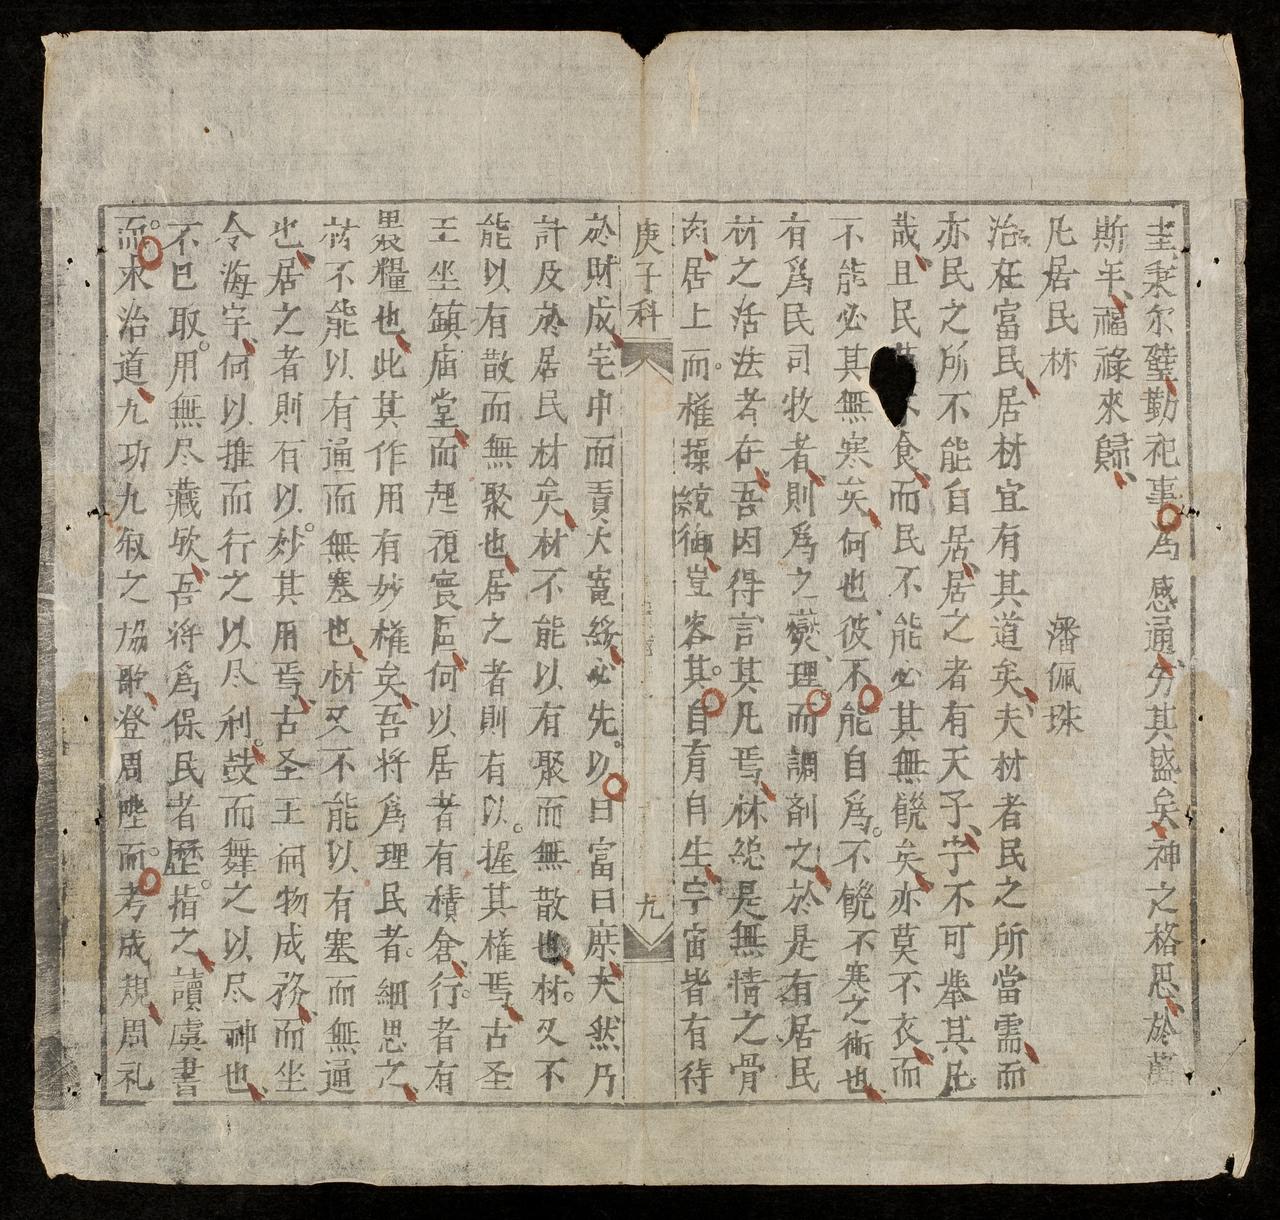 圭秉尔璧勤祀事為感通分其盛矣神之格思於萬
斯年福祿來歸
凢居民材 潘佩珠
治在富民居材宜有其道矣夫材者民之所當需而
亦民之所不能自居居之者有天子宁不可舉其凢
哉且民 食而民不能必其無饑矣亦莫不衣而
不能必其無寒矣何也彼不能自為不饑不寒之術也
有爲民司牧者則爲之爕理而調剂之於是有居民
材之活法者在吾因得言其凢焉材総是無情之骨
肉居上而權操統御豈容其自育自生宇宙皆有待
庚子科 九
於財成宅中而責大寛綏必先以曰富曰庶夫然乃
計及於居民材矣材不能以有聚而無散也材又不
能以有散而無聚也居之者則有以握其權焉古圣
王坐鎮庙堂而 視寰區何以居者有積倉行者有
裹糧也此其作用有妙權矣吾將爲理民者細思之
材不能以有通而無塞也材又不能以有塞而無通
也居之者則有以妙其用焉古圣王 物成務而坐
令海宇何以推而行之以尽利鼓而舞之以尽神也
不已取用無尽藏欤吾将爲保民者歷指之讀虞書
而求治道九功九叙之协歌登周陛而考成規周礼